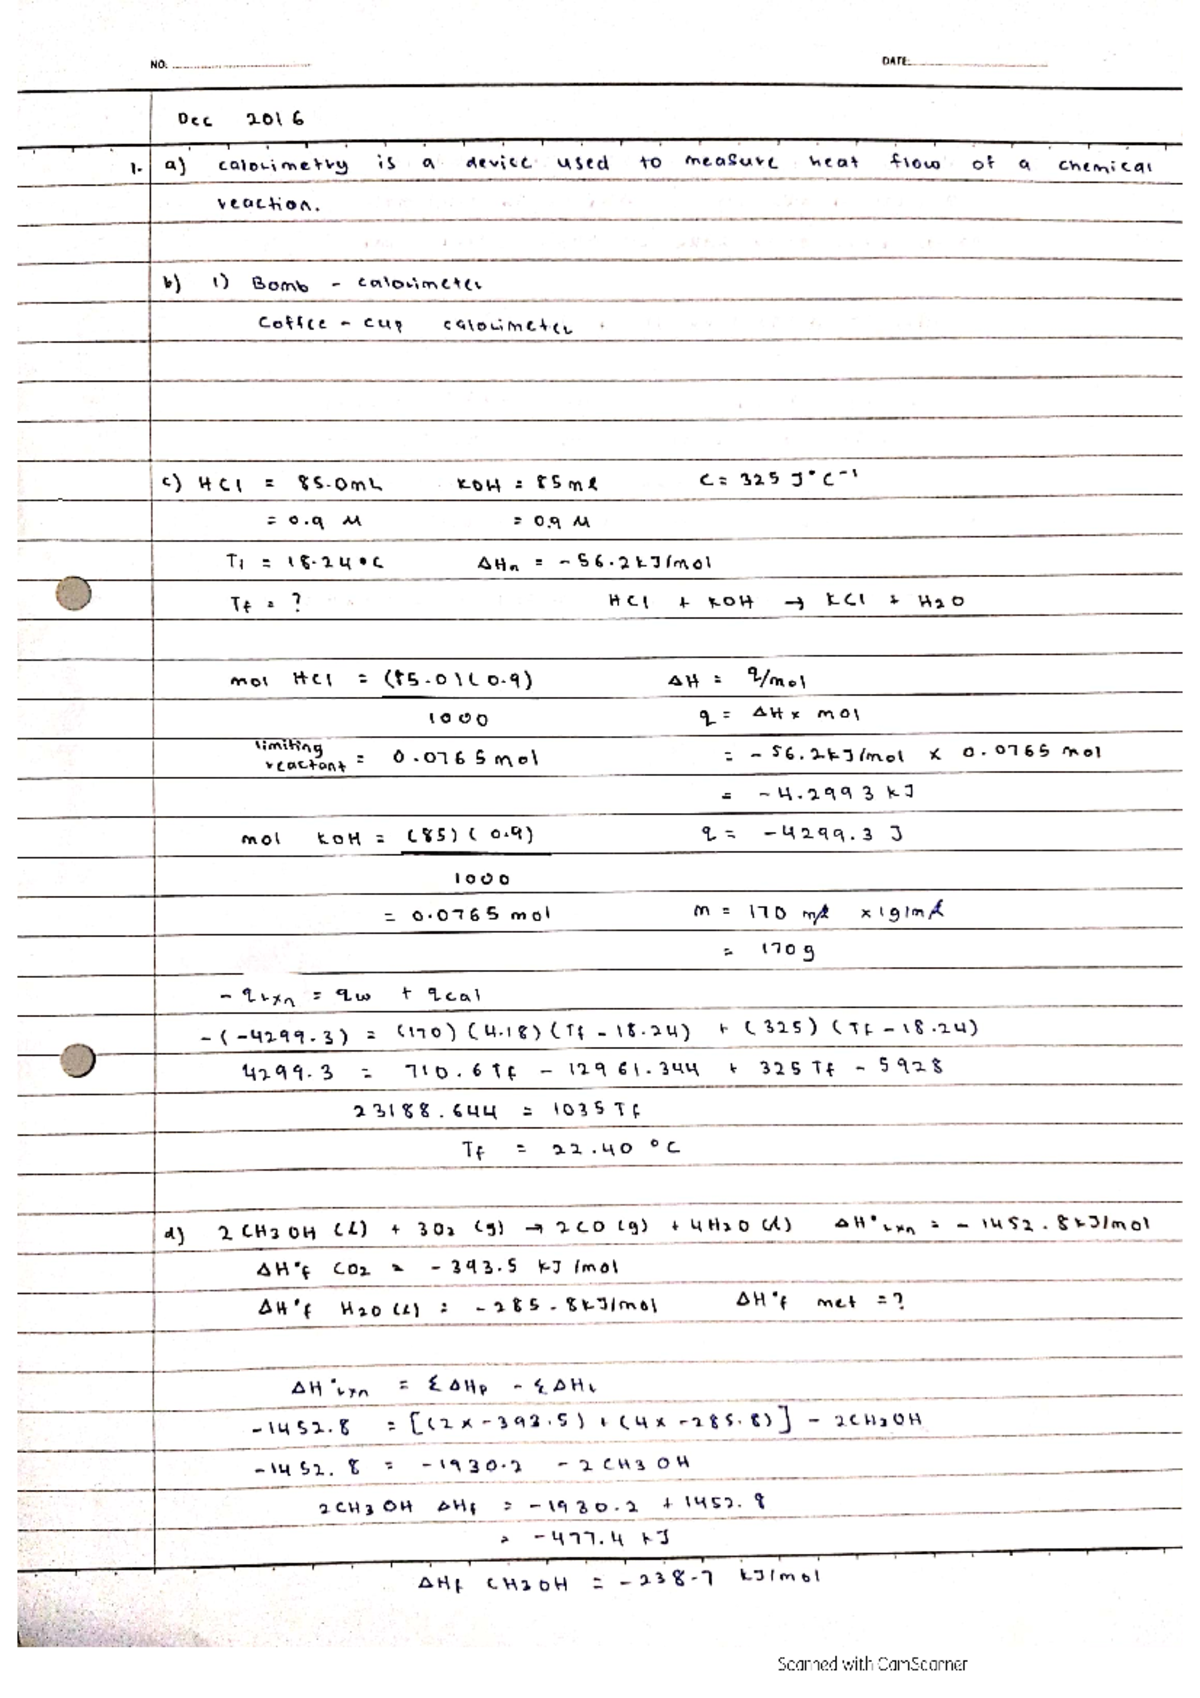 NO.
DATE:
Dec 2016
1. a) calorimetry is a device used to measure heat flow of a chemical
reaction.
b) 1) Bomb - calorimeter
Coffee - cup calorimeter
c) HCl = 85.0mL KOH = 85ml C = 325 J°C⁻¹
= 0.9 M = 0.9 M
Ti = 18.24°C ΔHn = -56.2kJ/mol
Tf = ? HCl + KOH → KCl + H2O
mol HCl = (85.0)(0.9) ΔH = q/mol
1000 q = ΔH x mol
limiting reactant = 0.0765 mol = -56.2kJ/mol x 0.0765 mol
= -4.2993 kJ
mol KOH = (85)(0.9) q = -4299.3 J
1000
= 0.0765 mol m = 170 ml x 1g/ml
= 170g
- qrxn = qw + qcal
-(-4299.3) = (170)(4.18)(Tf - 18.24) + (325)(Tf - 18.24)
4299.3 = 710.6Tf - 12961.344 + 325Tf - 5928
23188.644 = 1035Tf
Tf = 22.40 °C
d) 2CH3OH (l) + 3O2 (g) → 2CO (g) + 4H2O (l) ΔH°rxn = -1452.8kJ/mol
ΔH°f CO2 = -393.5 kJ/mol
ΔH°f H2O (l) = -285.8kJ/mol ΔH°f met = ?
ΔH°rxn = ΣΔHp - ΣΔHr
-1452.8 = [(2x-393.5) + (4x-285.8)] - 2CH3OH
-1452.8 = -1930.2 - 2CH3OH
2CH3OH ΔHf = -1930.2 + 1452.8
= -477.4 kJ
ΔHf CH3OH = -238.7 kJ/mol
Scanned with CamScanner